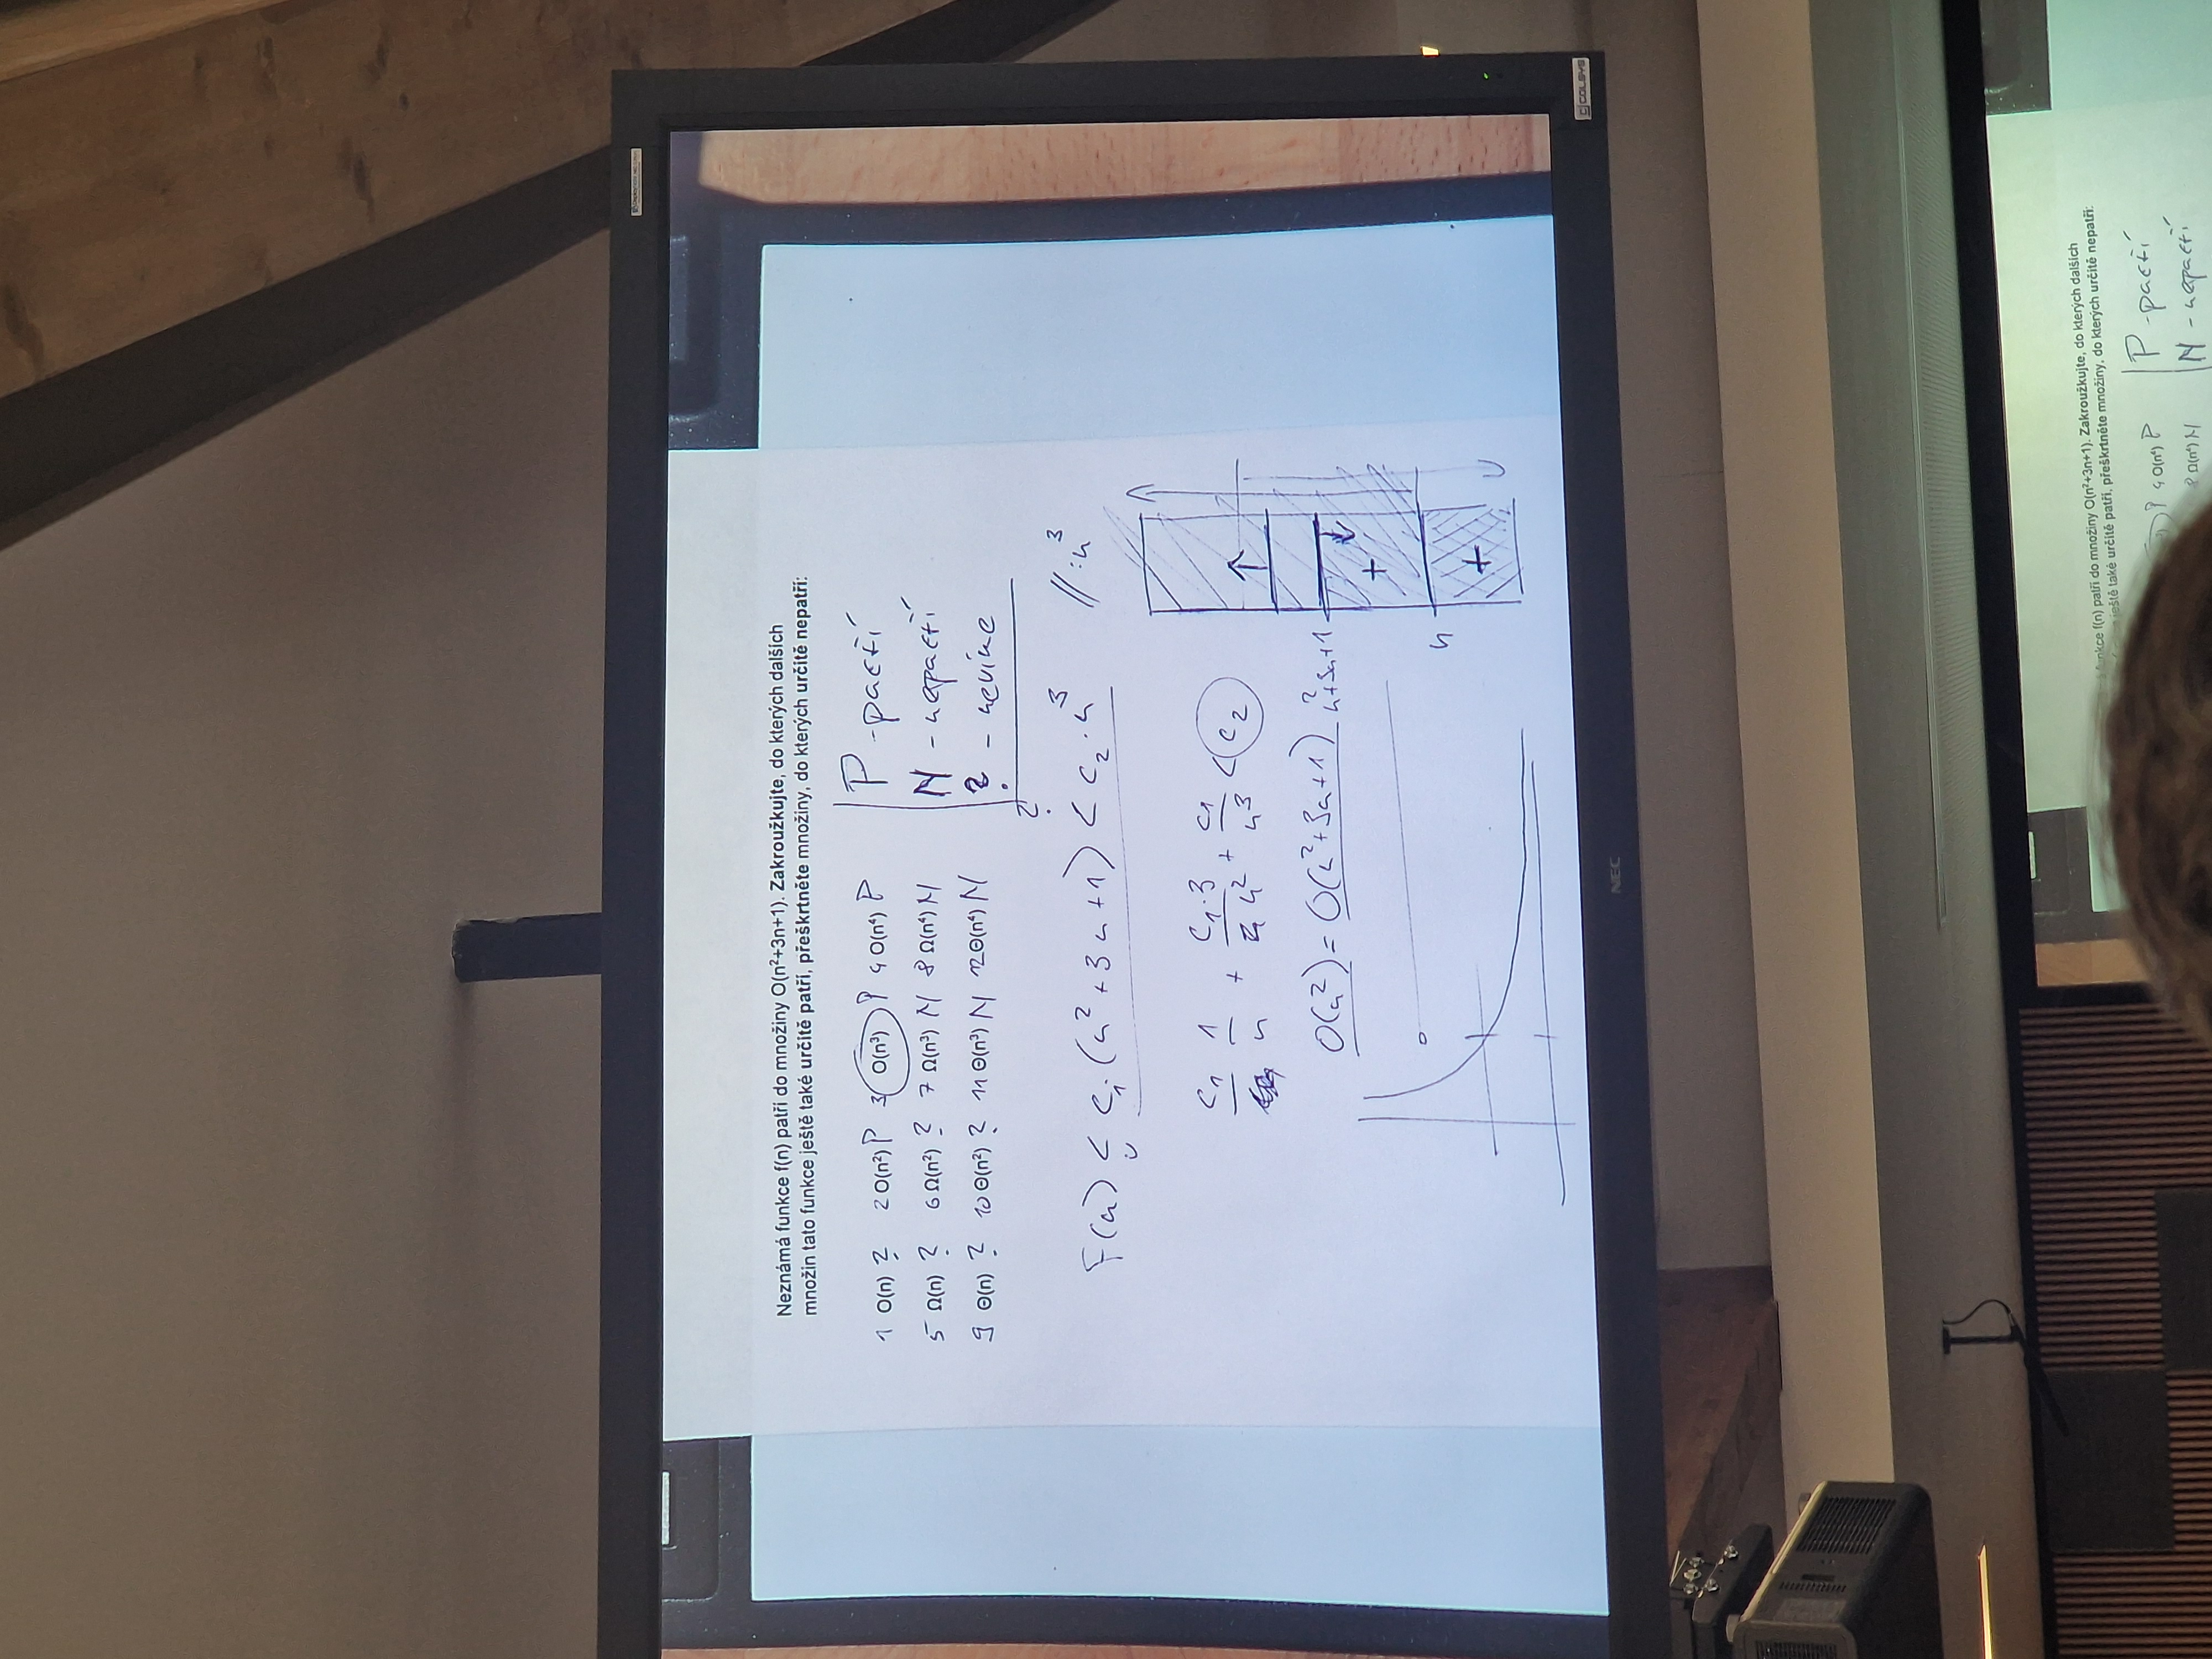 Neznámá funkce f(n) patří do množiny O(n²+3n+1). Zakroužkujte, do kterých dalších
množin tato funkce ještě také určitě patří, přeškrtněte množiny, do kterých určitě nepatří:
1 O(n) ? 2 O(n²) P 3 O(n³) P 4 O(n⁴) P
5 Ω(n) ? 6 Ω(n²) ? 7 Ω(n³) N 8 Ω(n⁴) N
9 Θ(n) ? 10 Θ(n²) ? 11 Θ(n³) N 12 Θ(n⁴) N
P - patří
N - nepatří
? - nevíme
?
F(n) ≤ c₁·(n²+3n+1) < c₂·n³ //:n³
c₁ 1/n + c₁·3/n² + c₁/n³ < c₂
O(n²) = O(n²+3n+1) n²+3n+1
+
n
+
NEC
COLSYS
funkce f(n) patří do množiny O(n²+3n+1). Zakroužkujte, do kterých dalších
ještě také určitě patří, přeškrtněte množiny, do kterých určitě nepatří:
P 4 O(n⁴) P
8 Ω(n⁴) N
P - patří
N - nepatří